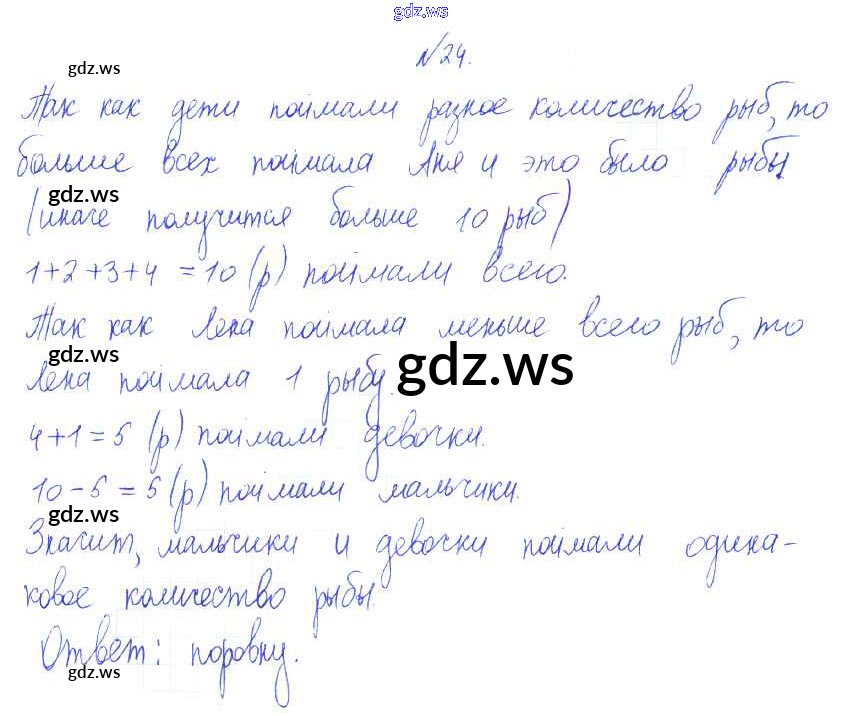 gdz.ws
№24.
gdz.ws
Так как дети поймали разное количество рыб, то
больше всех поймала Аня и это было рыбы
gdz.ws
(иначе получится больше 10 рыб)
1+2+3+4 = 10 (р) поймали всего.
gdz.ws
Так как Лена поймала меньше всего рыб, то
gdz.ws
gdz.ws
Лена поймала 1 рыбу.
4+1=5 (р) поймали девочки.
gdz.ws
10-5=5 (р) поймали мальчики.
gdz.ws
Значит, мальчики и девочки поймали одина-
gdz.ws
ковое количество рыбы.
Ответ: поровну.
gdz.ws